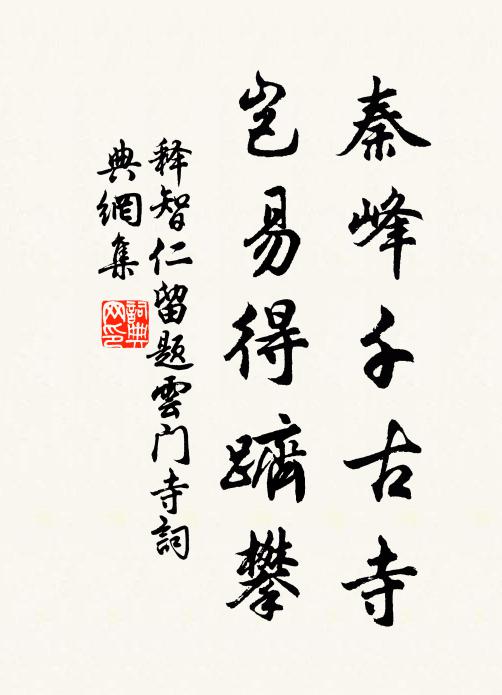 秦峰千古寺
岂易得躋攀
释智仁留题雲门寺詞
典網集
詞典网印